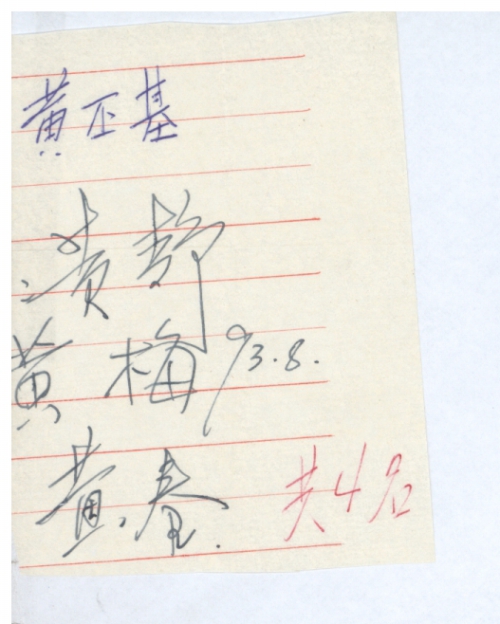 黄正基
黄静
黄梅 93.8.
黄春 共4名